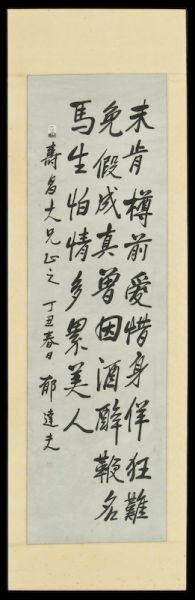 未肯樽前爱惜身佯狂難
免假成真曽因酒醉鞭名
馬生怕情多累美人
壽昌大兄正之 丁丑春日 郁達夫